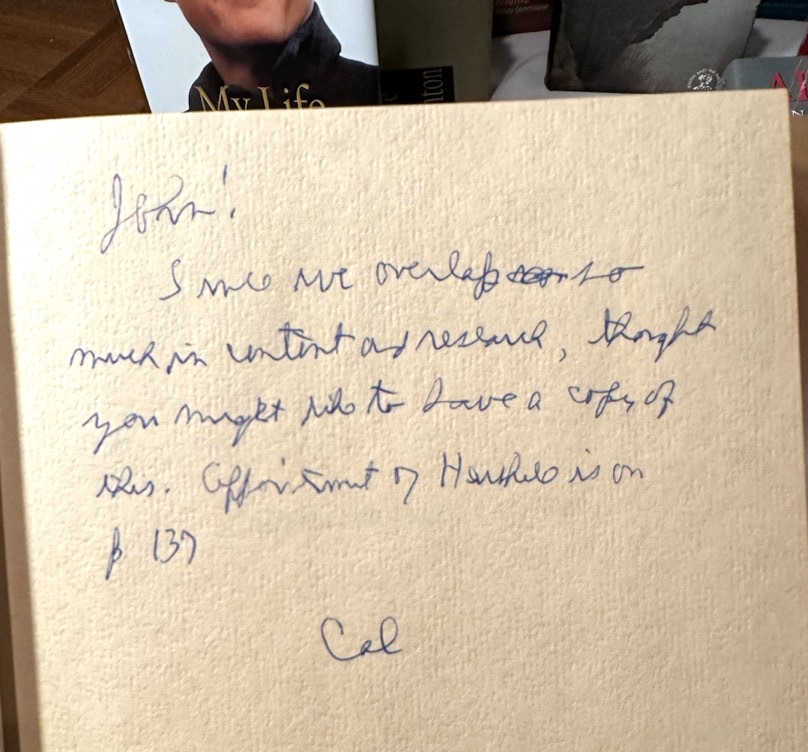 My Life
nton
ry Commission
John!
Since we overlap so
much in content and research, thought
you might like to have a copy of
this. Appointment of is on
p 137
Cal